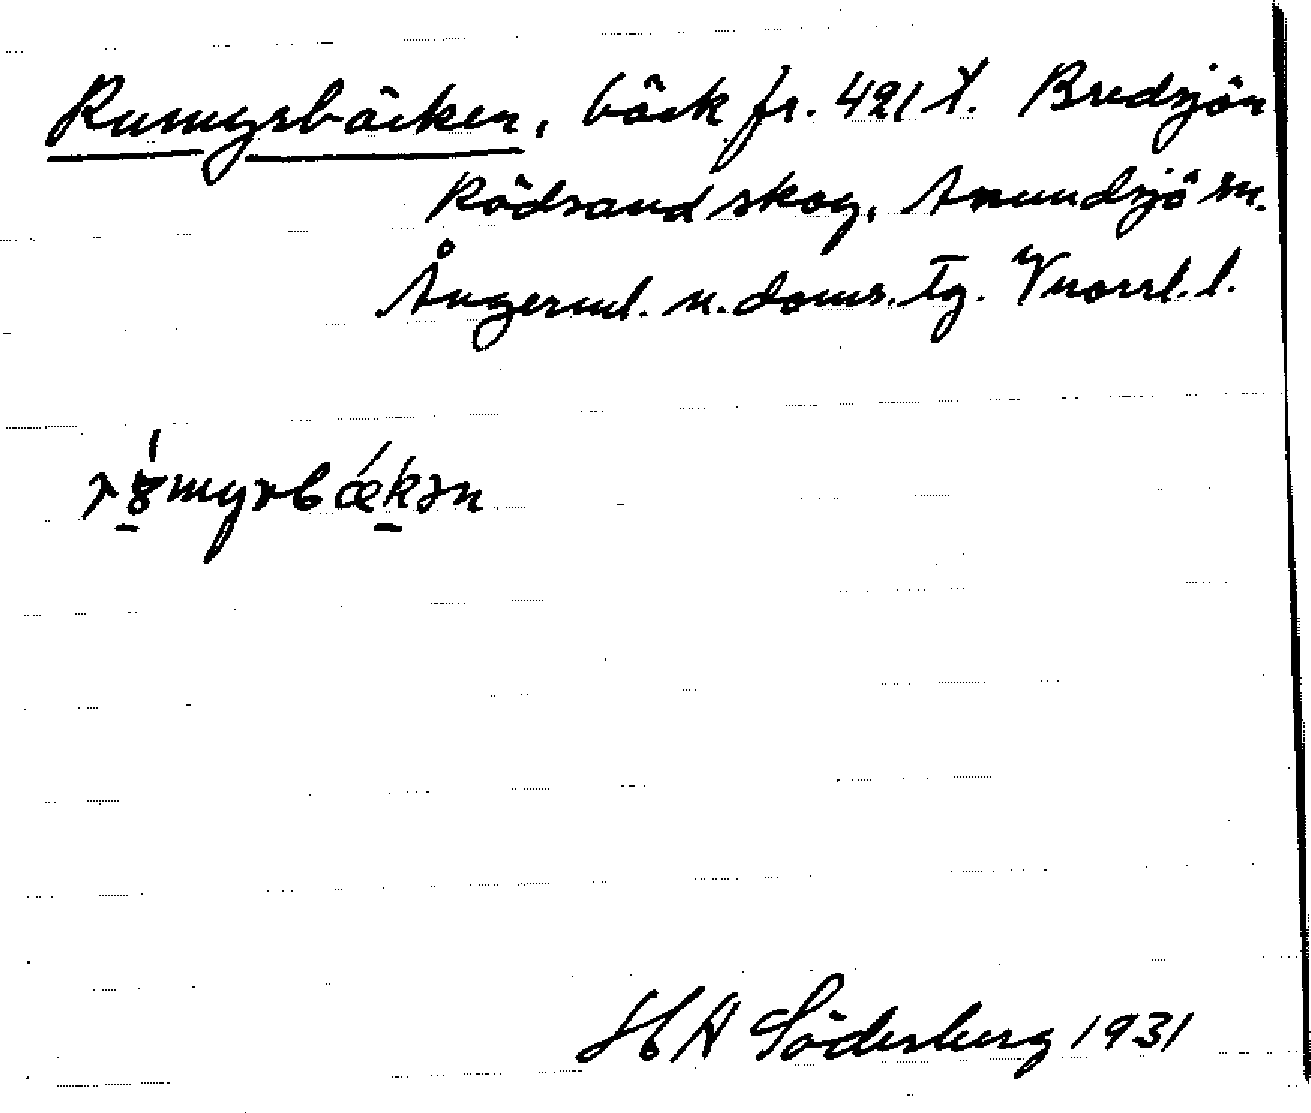 Rumyrbäcken, bäck fr. 421 t. Bredsjön
Rödsand skog, Anundsjö sn.
Ångerml. n. doms. Tg. Vnorrl. l.
myrbækən
H A Söderberg 1931